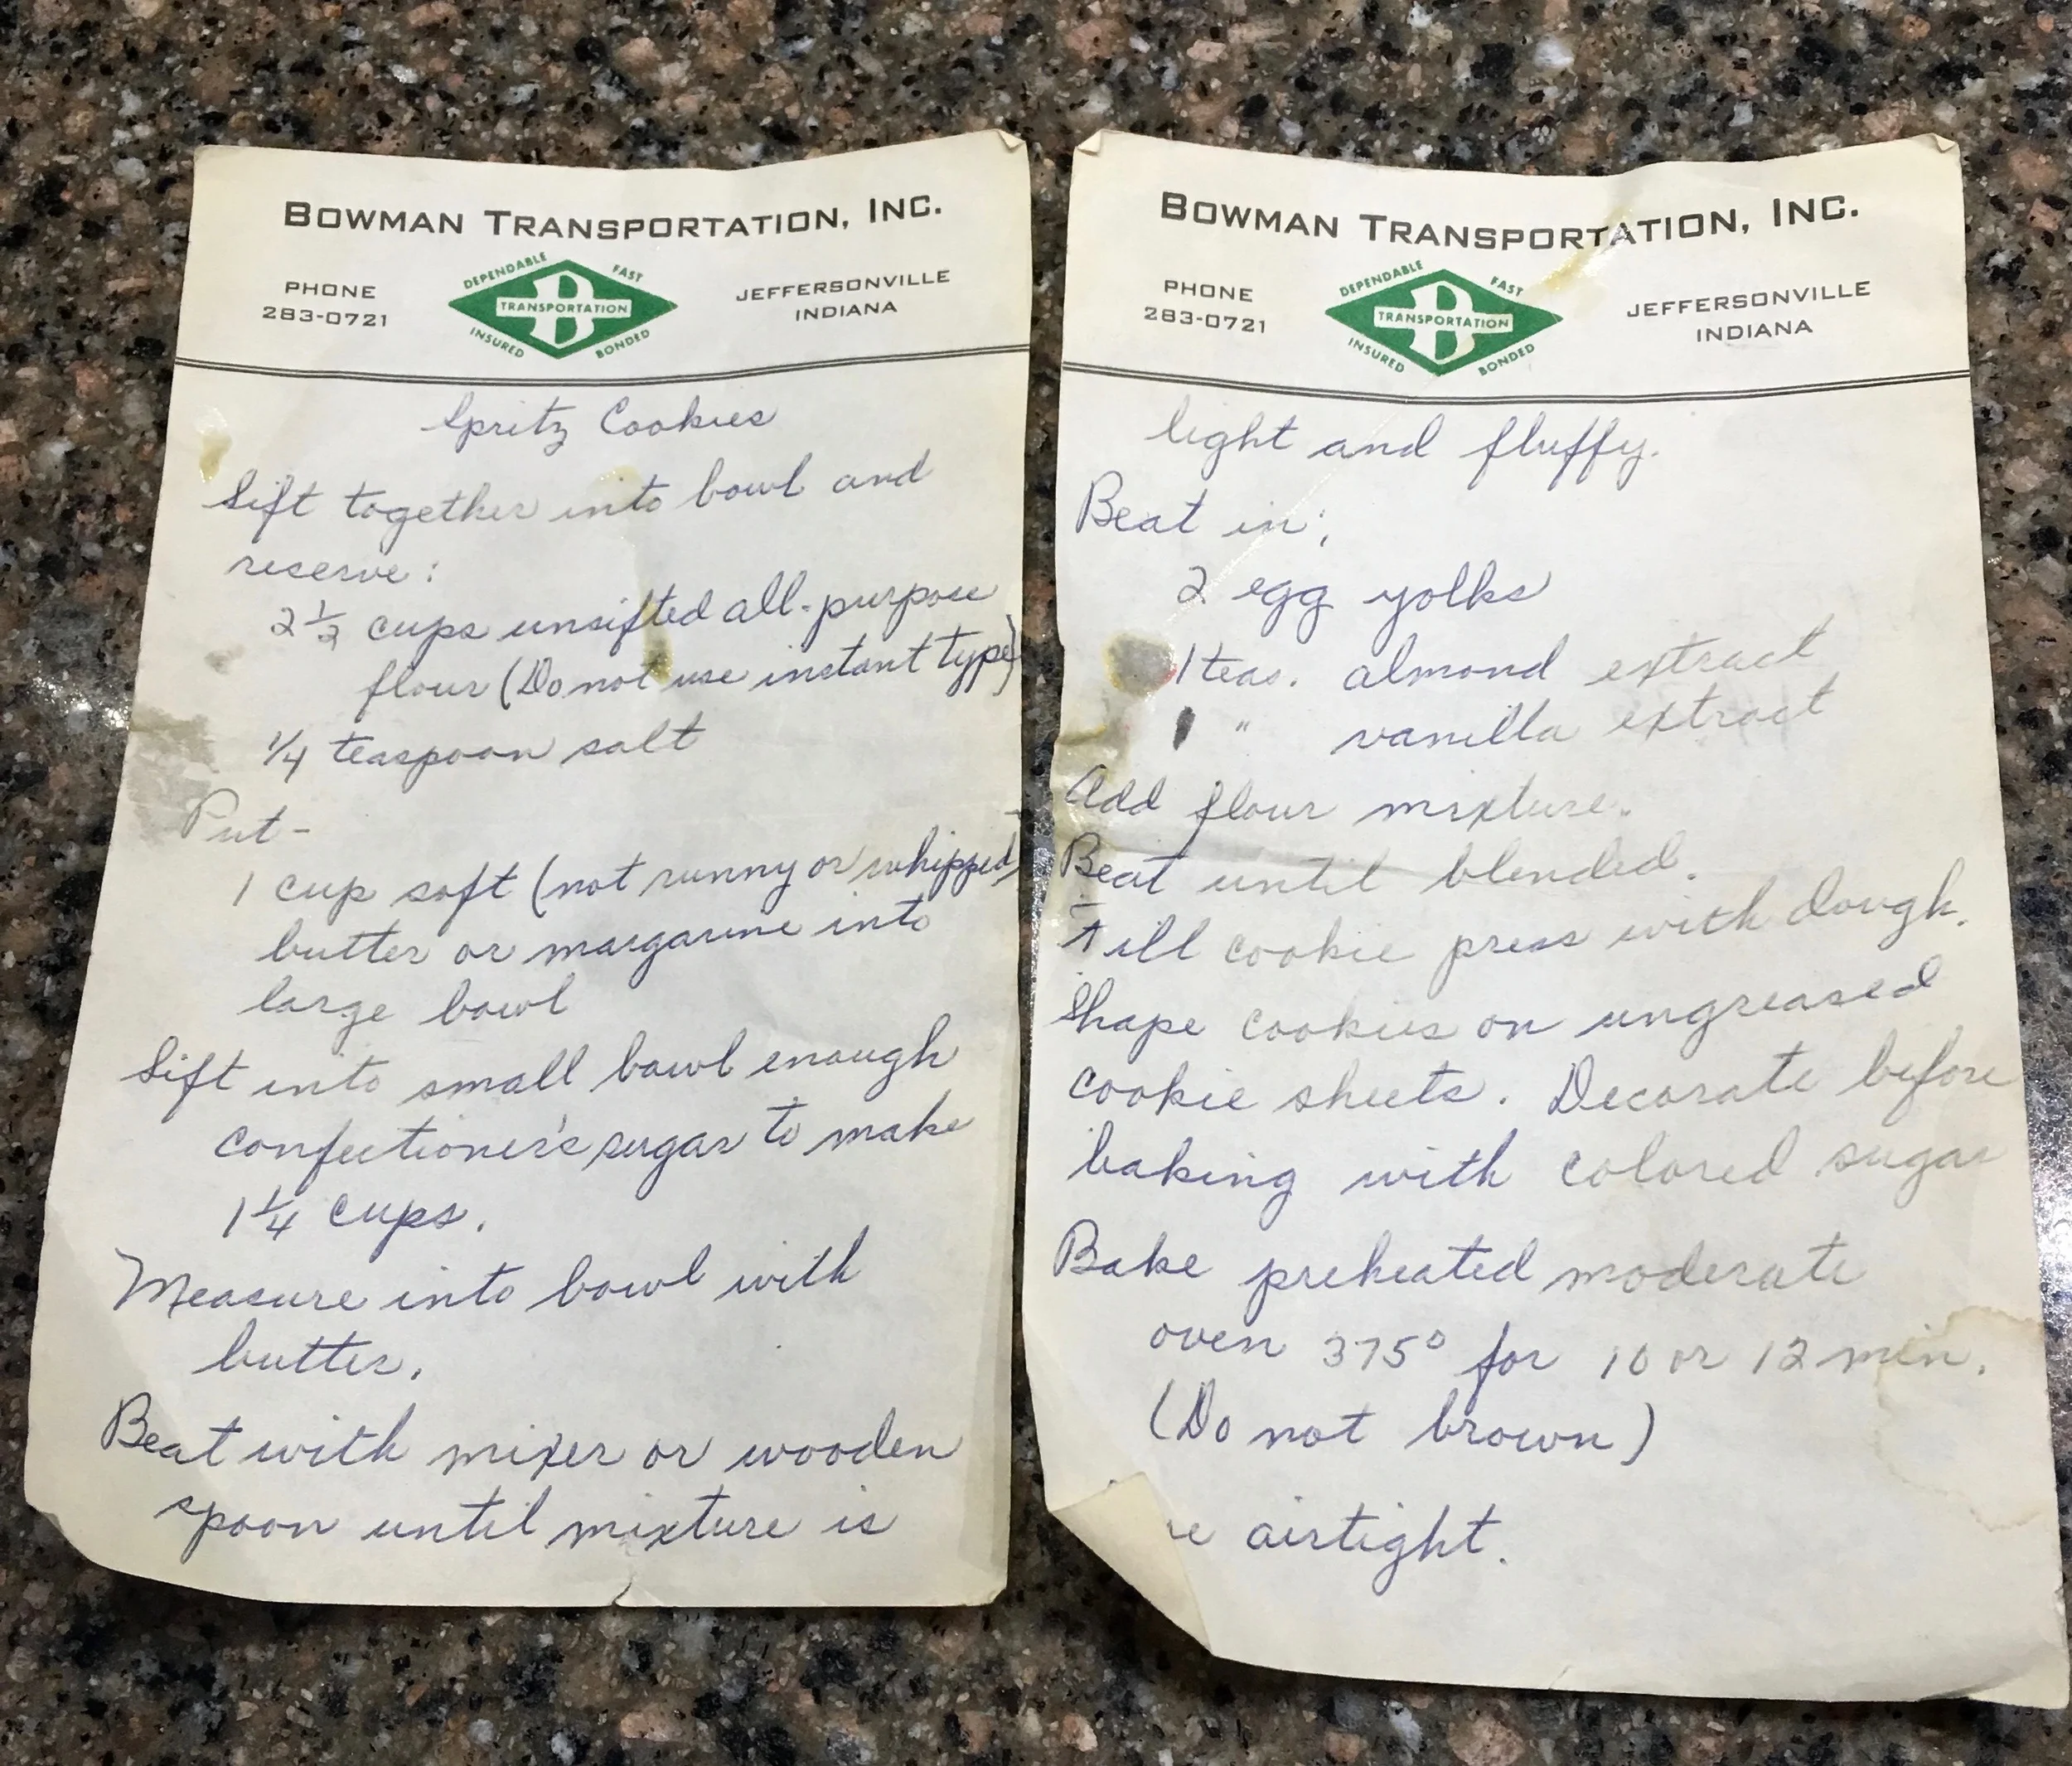 BOWMAN TRANSPORTATION, INC.
PHONE
283-0721
DEPENDABLE FAST
B
TRANSPORTATION
INSURED BONDED
JEFFERSONVILLE
INDIANA
Spritz Cookies
Sift together into bowl and
reserve:
2 1/2 cups unsifted all-purpose
flour (Do not use instant type)
1/4 teaspoon salt
Put -
1 cup soft (not runny or whipped)
butter or margarine into
large bowl
Sift into small bowl enough
confectioner's sugar to make
1 1/4 cups.
Measure into bowl with
butter.
Beat with mixer or wooden
spoon until mixture is
BOWMAN TRANSPORTATION, INC.
PHONE
283-0721
DEPENDABLE FAST
B
TRANSPORTATION
INSURED BONDED
JEFFERSONVILLE
INDIANA
light and fluffy.
Beat in;
2 egg yolks
1 teas. almond extract
1 " vanilla extract
Add flour mixture.
Beat until blended.
Fill cookie press with dough.
Shape cookies on ungreased
cookie sheets. Decorate before
baking with colored sugar
Bake preheated moderate
oven 375° for 10 or 12 min.
(Do not brown)
airtight.